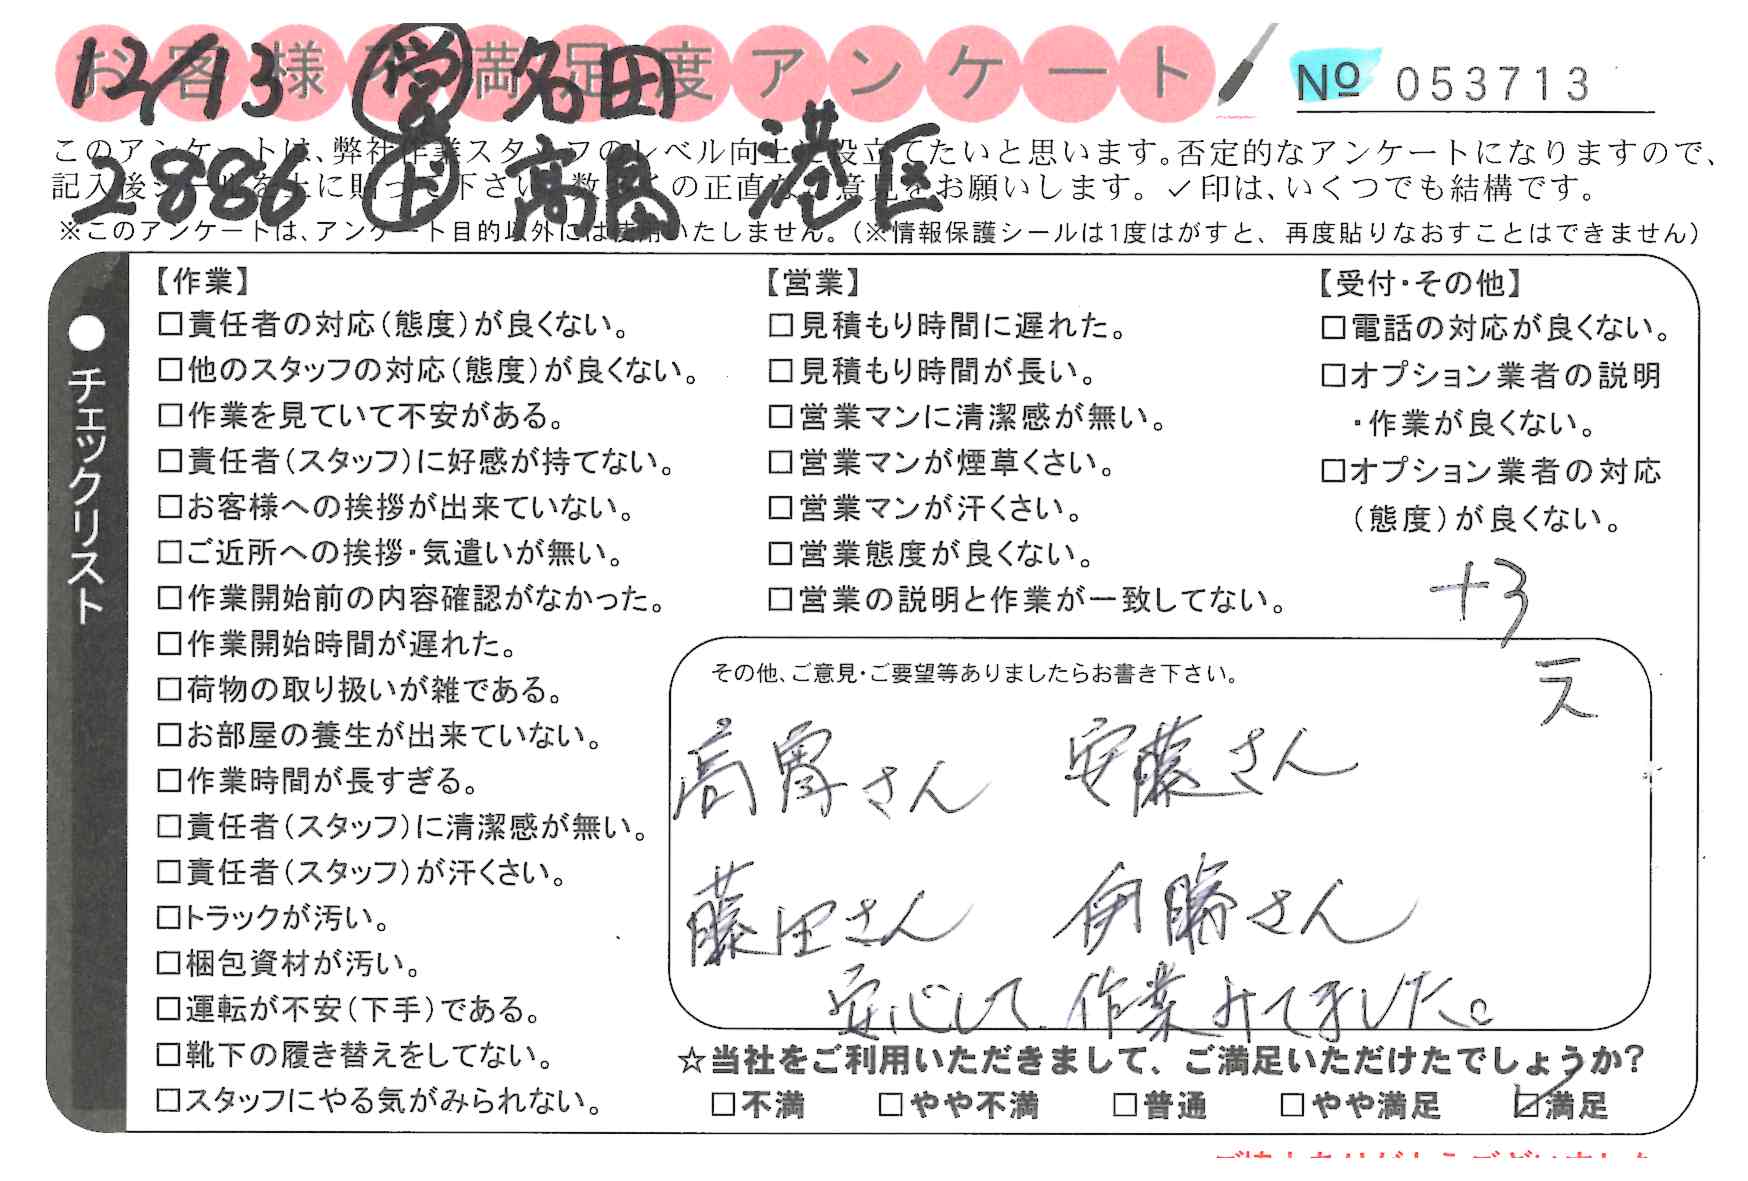 お客様不満足度アンケート
№ 053713
12/13 営 名田
2886 上 高畠 港区
このアンケートは、弊社作業スタッフのレベル向上に役立てたいと思います。否定的なアンケートになりますので、
記入後シールを上に貼って下さい。数多くの正直なご意見をお願いします。✓印は、いくつでも結構です。
※このアンケートは、アンケート目的以外には使用いたしません。(※情報保護シールは1度はがすと、再度貼りなおすことはできません)
●チェックリスト
【作業】
□責任者の対応(態度)が良くない。
□他のスタッフの対応(態度)が良くない。
□作業を見ていて不安がある。
□責任者(スタッフ)に好感が持てない。
□お客様への挨拶が出来ていない。
□ご近所への挨拶・気遣いが無い。
□作業開始前の内容確認がなかった。
□作業開始時間が遅れた。
□荷物の取り扱いが雑である。
□お部屋の養生が出来ていない。
□作業時間が長すぎる。
□責任者(スタッフ)に清潔感が無い。
□責任者(スタッフ)が汗くさい。
□トラックが汚い。
□梱包資材が汚い。
□運転が不安(下手)である。
□靴下の履き替えをしてない。
□スタッフにやる気がみられない。
【営業】
□見積もり時間に遅れた。
□見積もり時間が長い。
□営業マンに清潔感が無い。
□営業マンが煙草くさい。
□営業マンが汗くさい。
□営業態度が良くない。
□営業の説明と作業が一致してない。
【受付・その他】
□電話の対応が良くない。
□オプション業者の説明
・作業が良くない。
□オプション業者の対応
(態度)が良くない。
+3
その他、ご意見・ご要望等ありましたらお書き下さい。
さん 安藤さん
藤田さん 伊勝さん
安心して作業みてました。
☆当社をご利用いただきまして、ご満足いただけたでしょうか?
□不満 □やや不満 □普通 □やや満足 ☑満足